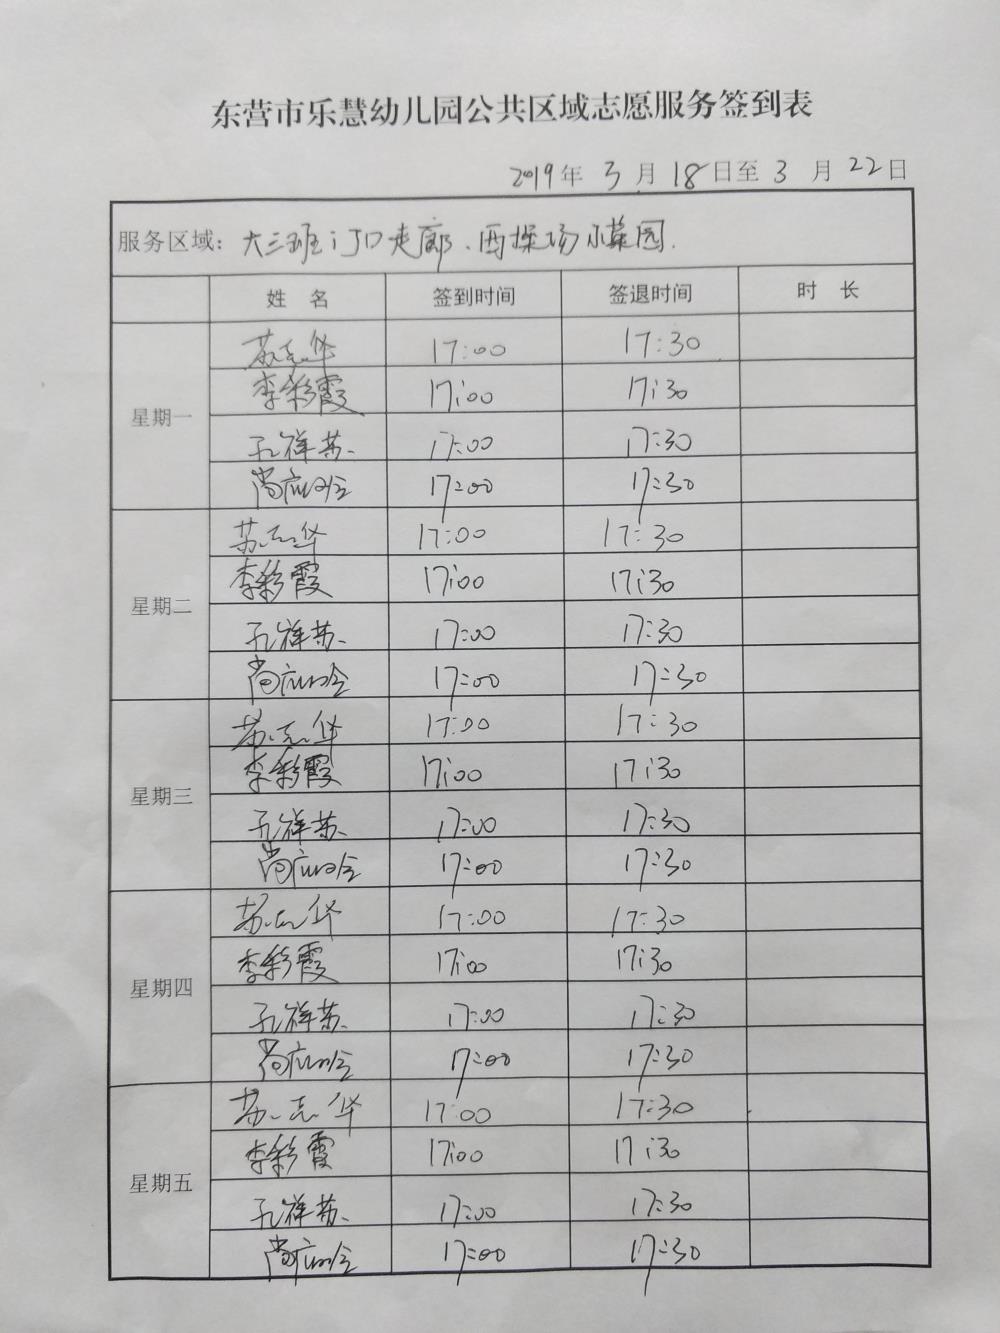 东营市乐慧幼儿园公共区域志愿服务签到表
2019年 3月 18日至 3月 22日
服务区域：大三班门口走廊、西操场小菜园.
姓 名 签到时间 签退时间 时 长
星期一
苏志华 17:00 17:30
李彩霞 17:00 17:30
孔祥苏 17:00 17:30
尚应 17:00 17:30
星期二
苏志华 17:00 17:30
李彩霞 17:00 17:30
孔祥苏 17:00 17:30
尚应 17:00 17:30
星期三
苏志华 17:00 17:30
李彩霞 17:00 17:30
孔祥苏 17:00 17:30
尚应 17:00 17:30
星期四
苏志华 17:00 17:30
李彩霞 17:00 17:30
孔祥苏 17:00 17:30
尚应 17:00 17:30
星期五
苏志华 17:00 17:30
李彩霞 17:00 17:30
孔祥苏 17:00 17:30
尚应 17:00 17:30